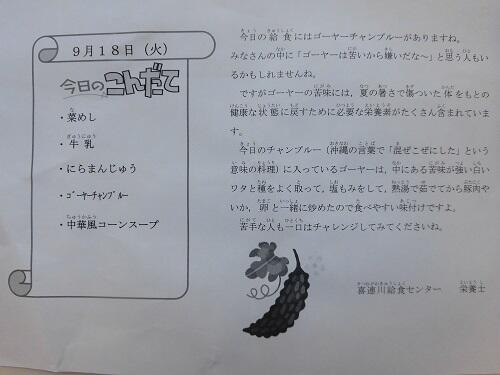 9月18日（火）
今日のこんだて
・菜めし
・牛乳
・にらまんじゅう
・ゴーヤーチャンプルー
・中華風コーンスープ
今日の給食にはゴーヤーチャンブルーがありますね。
みなさんの中に「ゴーヤーは苦いから嫌いだな～」と思う人もい
るかもしれませんね。
ですがゴーヤーの苦味には，夏の暑さで傷ついた体をもとの
健康な状態に戻すために必要な栄養素がたくさん含まれていま
す。
今日のチャンブルー（沖縄の言葉で「混ぜこぜにした」という
意味の料理）に入っているゴーヤーは，中にある苦味が強い白い
ワタと種をよく取って，塩もみをして，熱湯で茹でてから豚肉や
いか，卵と一緒に炒めたので食べやすい味付けですよ。
苦手な人も一口はチャレンジしてみてくださいね。
喜連川給食センター　栄養士